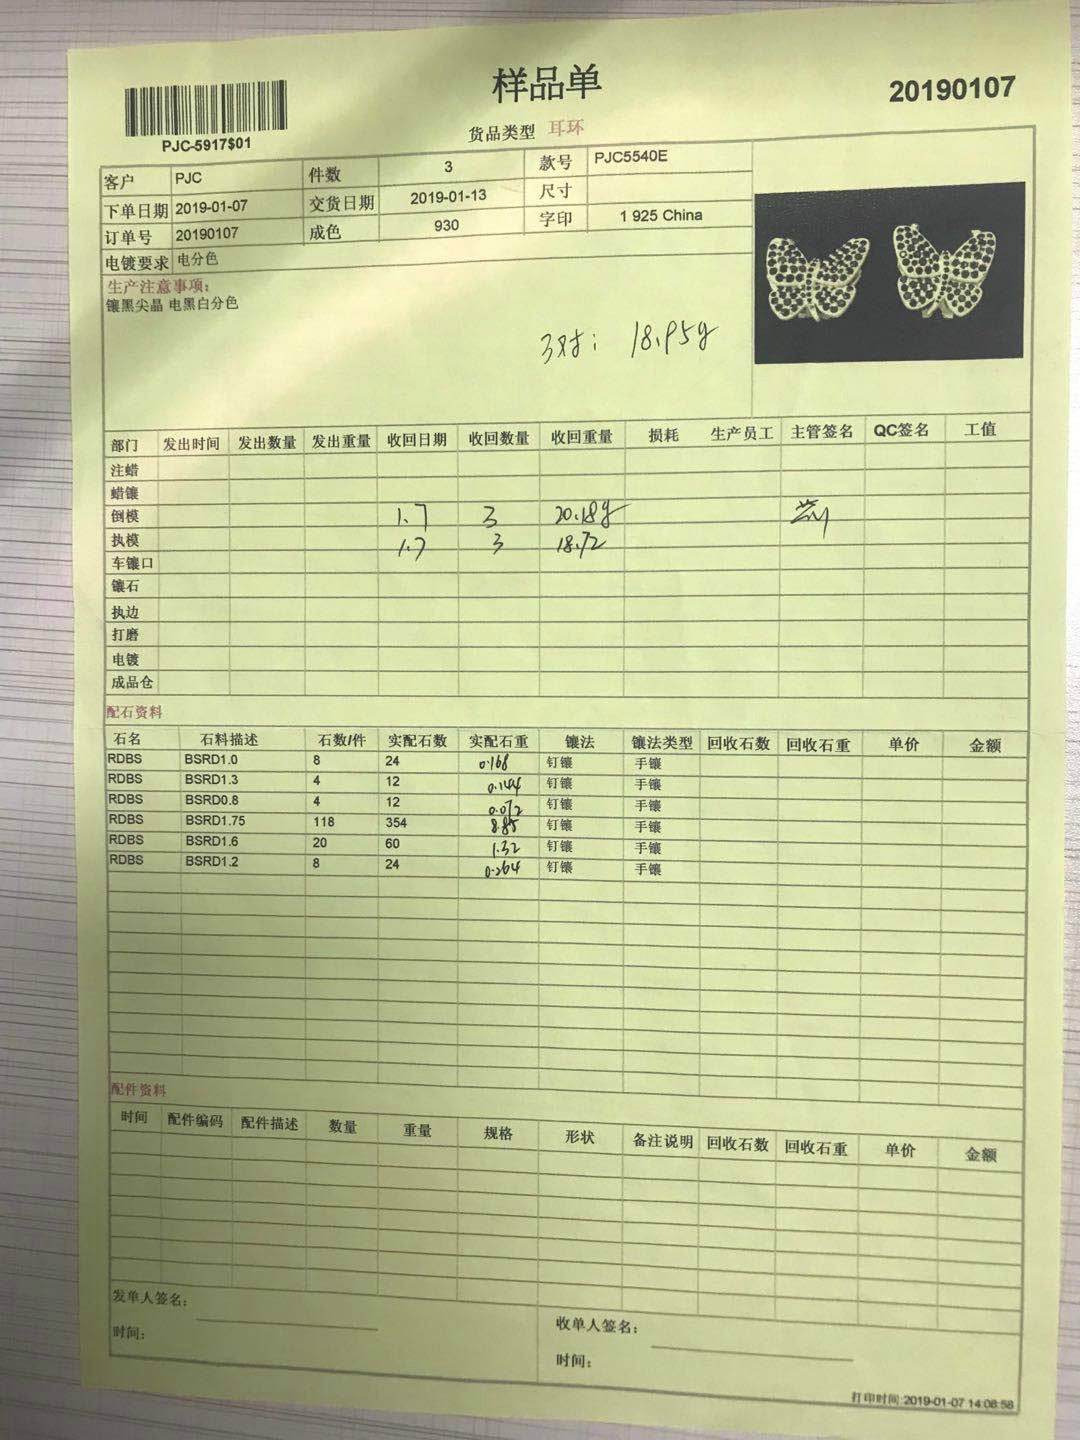 样品单
20190107
PJC-5917$01
货品类型 耳环
客户 PJC 件数 3 款号 PJC5540E
下单日期 2019-01-07 交货日期 2019-01-13 尺寸
订单号 20190107 成色 930 字印 1 925 China
电镀要求 电分色
生产注意事项:
镶黑尖晶 电黑白分色
3对: 18.95g
部门 发出时间 发出数量 发出重量 收回日期 收回数量 收回重量 损耗 生产员工 主管签名 QC签名 工值
注蜡
蜡镶
倒模 1.7 3 20.18g
执模 1.7 3 18.72
车镶口
镶石
执边
打磨
电镀
成品仓
配石资料
石名 石料描述 石数/件 实配石数 实配石重 镶法 镶法类型 回收石数 回收石重 单价 金额
RDBS BSRD1.0 8 24 0.168 钉镶 手镶
RDBS BSRD1.3 4 12 0.144 钉镶 手镶
RDBS BSRD0.8 4 12 0.072 钉镶 手镶
RDBS BSRD1.75 118 354 8.85 钉镶 手镶
RDBS BSRD1.6 20 60 1.32 钉镶 手镶
RDBS BSRD1.2 8 24 0.264 钉镶 手镶
配件资料
时间 配件编码 配件描述 数量 重量 规格 形状 备注说明 回收石数 回收石重 单价 金额
发单人签名:
时间:
收单人签名:
时间:
打印时间:2019-01-07 14:08:58